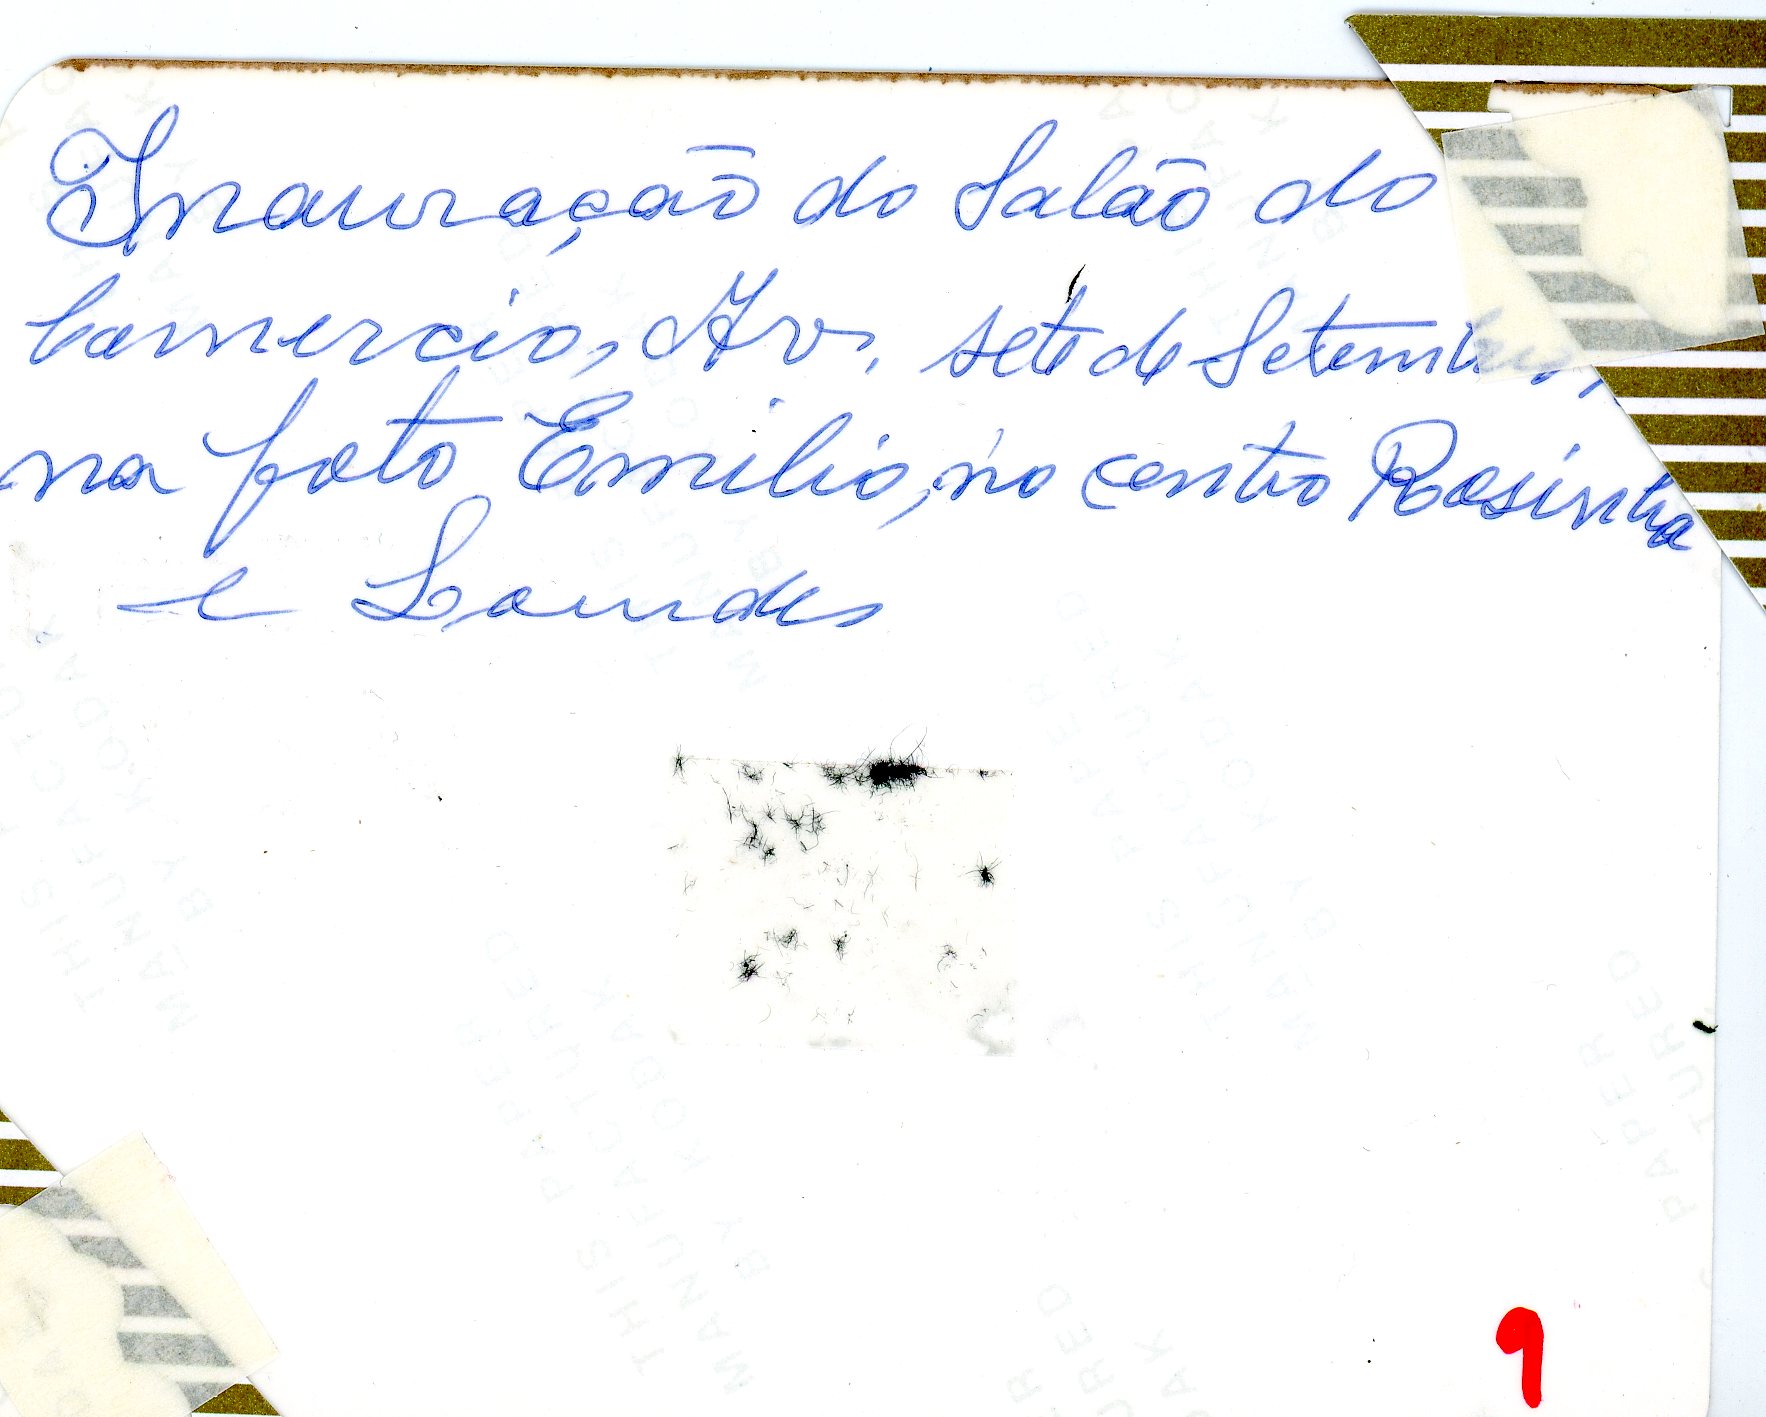 Inauração do Salão do
Comercio, Av. sete de Setembro,
na foto Emilio, no centro Rosinha
e Lourdes
THIS PAPER
MANUFACTURED
BY KODAK
9